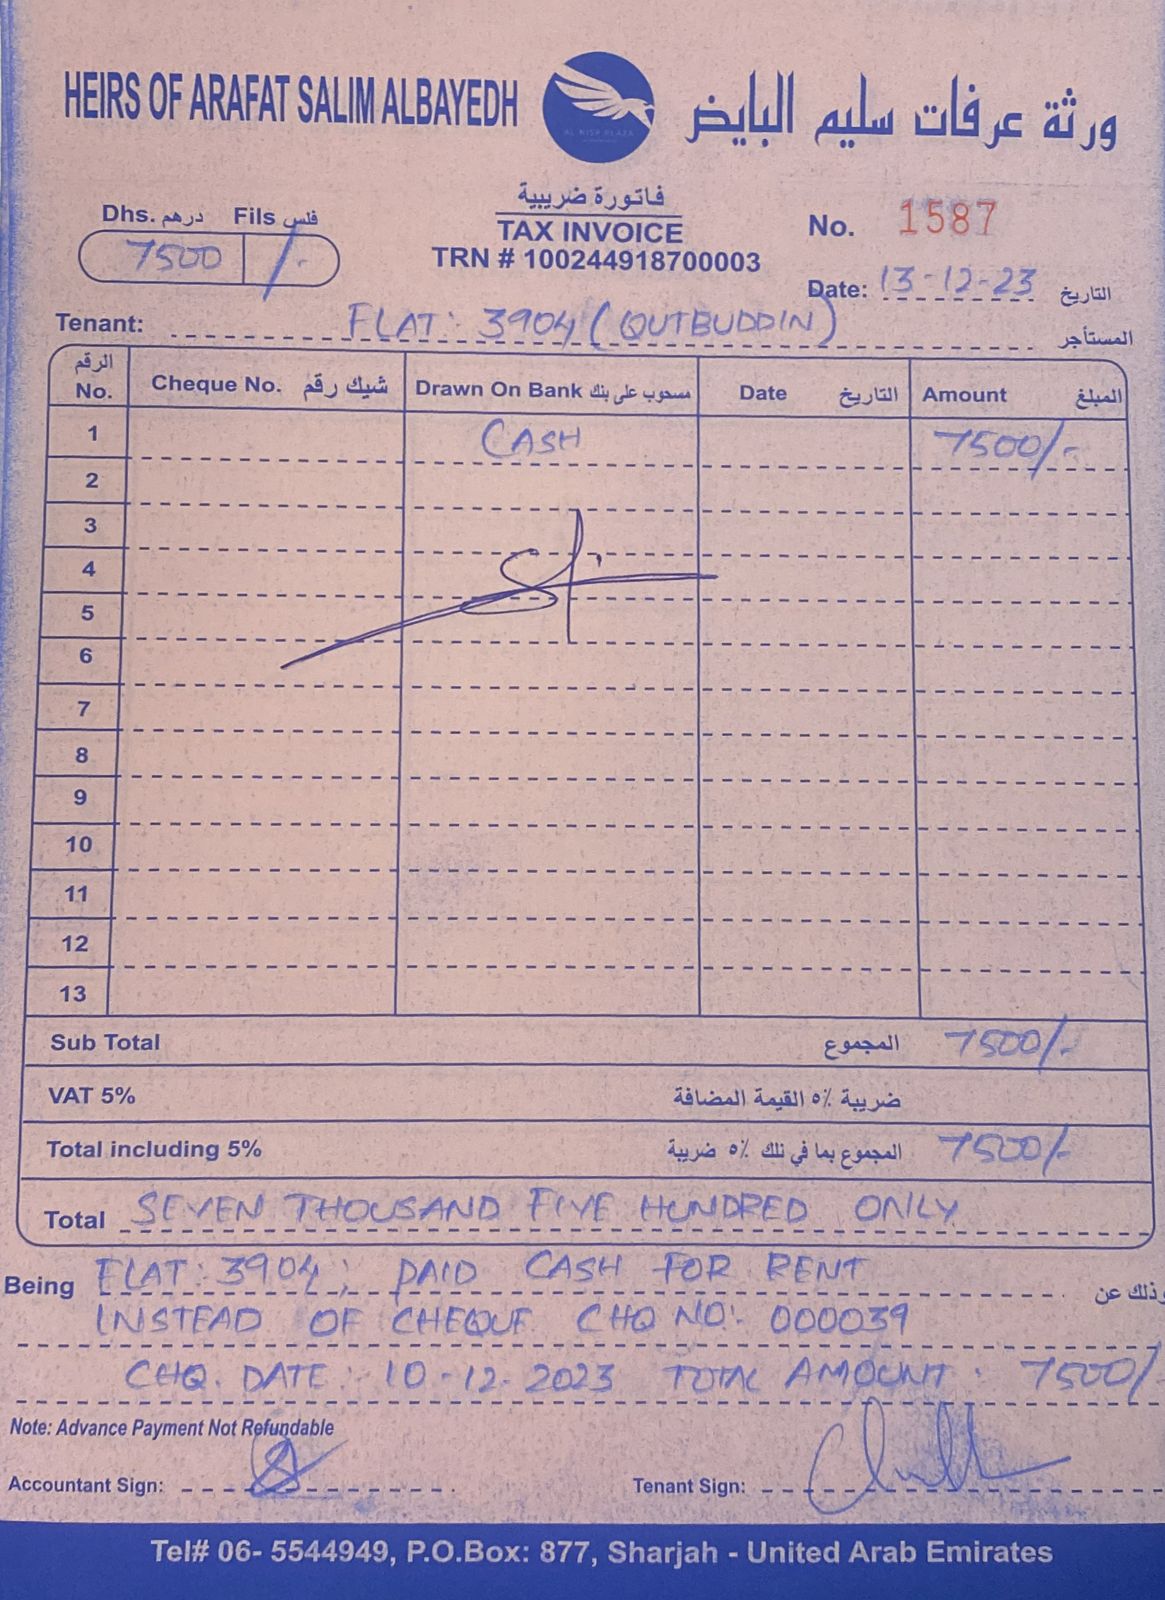 HEIRS OF ARAFAT SALIM ALBAYEDH
AL NISR PLAZA
ورثة عرفات سليم البايض
فاتورة ضريبية
TAX INVOICE
TRN # 100244918700003
Dhs. درهم Fils فلس
7500 /-
No. 1587
Date: 13-12-23 التاريخ
Tenant: FLAT: 3904 (QUTBUDDIN) المستأجر
الرقم No. Cheque No. شيك رقم Drawn On Bank مسحوب على بنك Date التاريخ Amount المبلغ
1 CASH 7500/-
2
3
4
5
6
7
8
9
10
11
12
13
Sub Total المجموع 7500/-
VAT 5% ضريبة ٥٪ القيمة المضافة
Total including 5% المجموع بما في تلك ٥٪ ضريبة 7500/-
Total SEVEN THOUSAND FIVE HUNDRED ONLY
Being FLAT: 3904, PAID CASH FOR RENT وذلك عن
INSTEAD OF CHEQUE. CHQ NO: 000039
CHQ. DATE: 10-12-2023 TOTAL AMOUNT: 7500/
Note: Advance Payment Not Refundable
Accountant Sign:
Tenant Sign:
Tel# 06- 5544949, P.O.Box: 877, Sharjah - United Arab Emirates